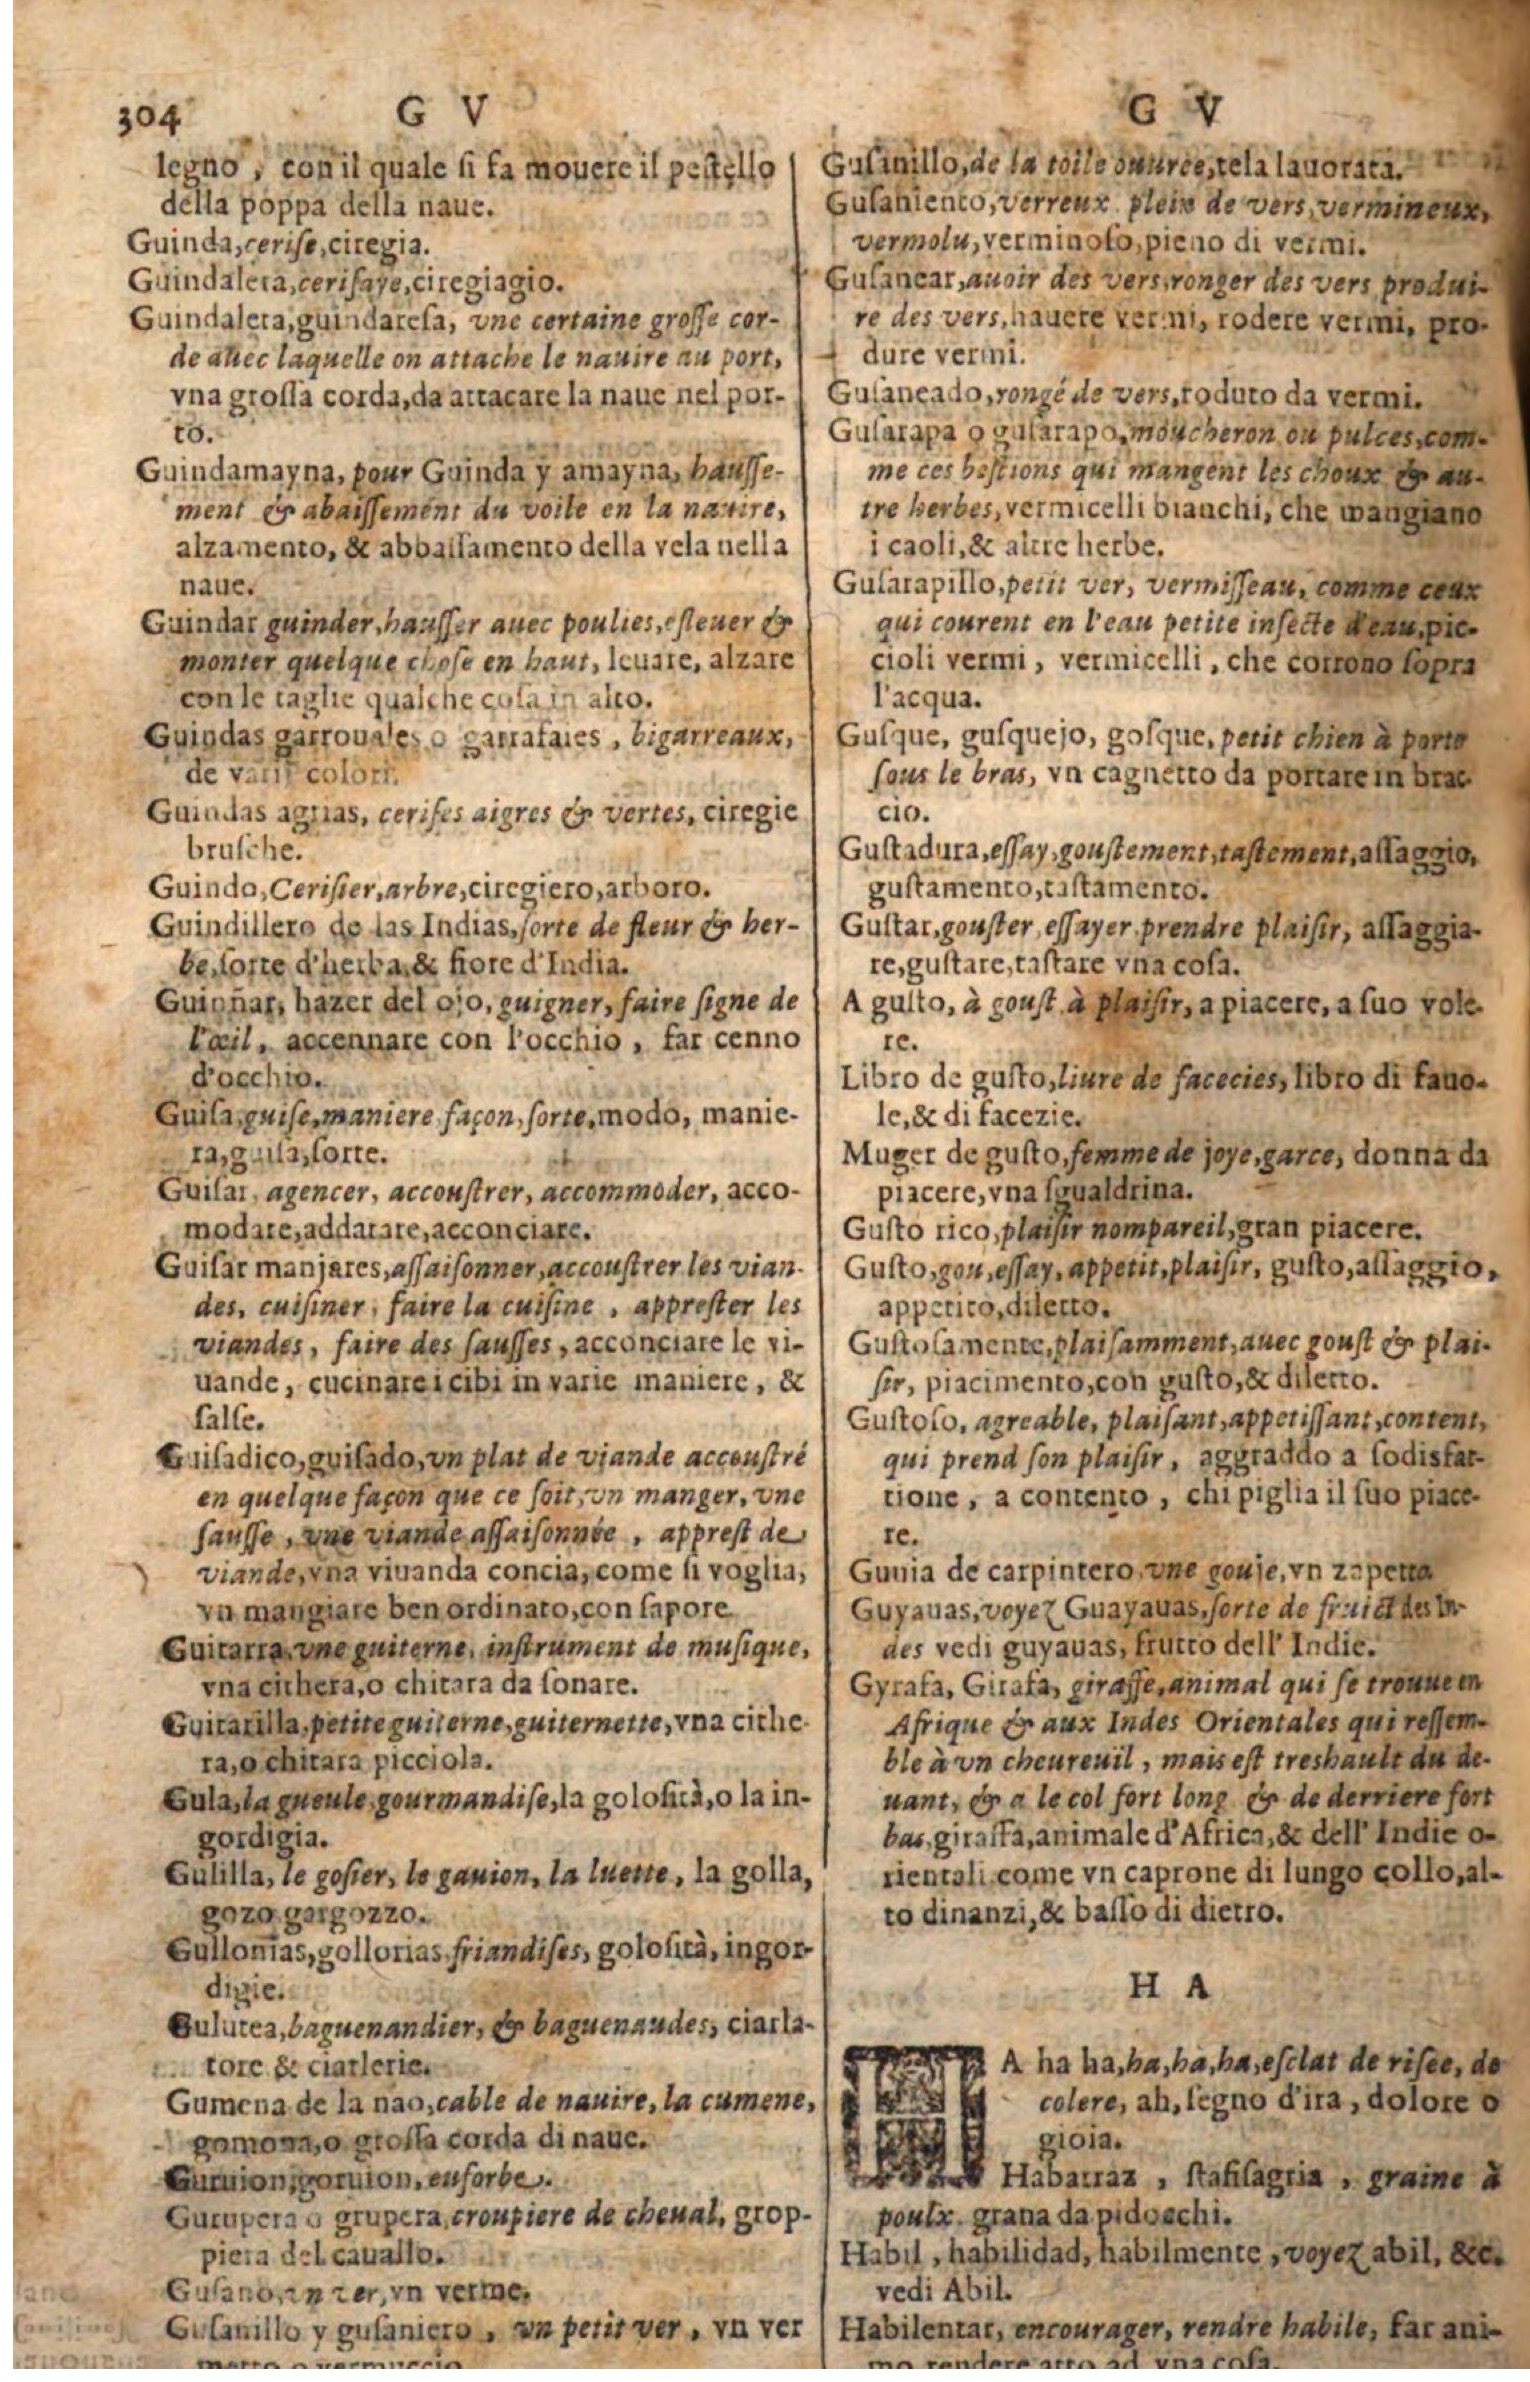 304 G V
legno, con il quale si fa mouere il pestello
della poppa della naue.
Guinda,cerise,ciregia.
Guindalera,cerisaye,ciregiagio.
Guindaleta,guindaresa, vne certaine grosse cor-
de auec laquelle on attache le nauire au port,
vna grossa corda,da attacare la naue nel por-
to.
Guindamayna, pour Guinda y amayna, hausse-
ment & abaissement du voile en la nauire,
alzamento, & abbassamento della vela nella
naue.
Guindar guinder,hausser auec poulies,esleuer &
monter quelque chose en haut, leuare, alzare
con le taglie qualche cosa in alto.
Guindas garrouales o garrafales, bigarreaux,
de varii colori.
Guindas agrias, cerises aigres & vertes, ciregie
brusche.
Guindo,Cerisier,arbre,ciregiero,arboro.
Guindillero de las Indias,sorte de fleur & her-
be,sorte d'herba,& fiore d'India.
Guiñar, hazer del ojo, guigner, faire signe de
l'œil, accennare con l'occhio, far cenno
d'occhio.
Guisa,guise,maniere,façon,sorte,modo, manie-
ra,guisa,sorte.
Guisar, agencer, accoustrer, accommoder, acco-
modare,addatare,acconciare.
Guisar manjares,assaisonner,accoustrer les vian-
des, cuisiner, faire la cuisine, apprester les
viandes, faire des sausses, acconciare le vi-
uande, cucinare i cibi in varie maniere, &
salse.
Guisadico,guisado,vn plat de viande accoustré
en quelque façon que ce soit,vn manger, vne
sausse, vne viande assaisonnée, apprest de
viande,vna viuanda concia, come si voglia,
vn mangiare ben ordinato,con sapore.
Guitarra,vne guiterne, instrument de musique,
vna cithera,o chitara da sonare.
Guitarilla,petite guiterne,guiternette,vna cithe-
ra,o chitara picciola.
Gula,la gueule,gourmandise,la golosità,o la in-
gordigia.
Gulilla, le gosier, le gauion, la luette, la golla,
gozo gargozzo.
Gullorias,gollorias,friandises, golosità, ingor-
digie.
Gulurea,baguenandier, & baguenaudes, ciarla-
tore & ciarlerie.
Gumena de la nao,cable de nauire, la cumene,
gomona,o grossa corda di naue.
Guruion,goruion, euforbe.
Gurupera o grupera,croupiere de cheual, grop-
piera del cauallo.
Gusano,vn ver,vn verme.
Gusanillo y gusaniero, vn petit ver, vn ver
metto o vermuccio
G V
Gusanillo,de la toille ouuree,tela lauorata.
Gusaniento,verreux plein de vers,vermineux,
vermolu,verminoso,pieno di vermi.
Gusanear,auoir des vers,ronger des vers produi-
re des vers,hauere vermi, rodere vermi, pro-
dure vermi.
Gusaneado,rongé de vers,roduto da vermi.
Gusarapa o gusarapo,moucheron ou pulces,com-
me ces bestions qui mangent les choux & au-
tre herbes,vermicelli bianchi, che mangiano
i caoli,& altre herbe.
Gusarapillo,petit ver, vermisseau, comme ceux
qui courent en l'eau petite insecte d'eau,pic-
cioli vermi, vermicelli, che corrono sopra
l'acqua.
Gusque, gusquejo, gosque,petit chien à porte
sous le bras, vn cagnetto da portare in brac-
cio.
Gustadura,essay,goustement,tastement,assaggio,
gustamento,tastamento.
Gustar,gouster,essayer,prendre plaisir, assaggia-
re,gustare,tastare vna cosa.
A gusto, à goust à plaisir, a piacere, a suo vole-
re.
Libro de gusto,liure de facecies, libro di fauo-
le,& di facezie.
Muger de gusto,femme de joye,garce, donna da
piacere,vna sgualdrina.
Gusto rico,plaisir nompareil,gran piacere.
Gusto,gou,essay,appetit,plaisir, gusto,assaggio,
appetito,diletto.
Gustosamente,plaisamment,auec goust & plai-
sir, piacimento,con gusto,& diletto.
Gustoso, agreable, plaisant,appetissant,content,
qui prend son plaisir, aggraddo a sodisfat-
tione, a contento, chi piglia il suo piace-
re.
Guuia de carpintero,vne gouje,vn zapetta
Guyauas,voyez Guayauas,sorte de fruict des In-
des vedi guyauas, frutto dell' Indie.
Gyrafa, Girafa, giraffe,animal qui se trouue en
Afrique & aux Indes Orientales qui ressem-
ble à vn cheureuil, mais est treshault du de-
uant, & a le col fort long & de derriere fort
bas,giraffa,animale d'Africa,& dell' Indie o-
rientali come vn caprone di lungo collo,al-
to dinanzi,& basso di dietro.
H A
HA ha ha,ha,ha,ha,esclat de risee, de
colere, ah, segno d'ira, dolore o
gioia.
Habarraz, stafisagria, graine à
poulx. grana da pidocchi.
Habil, habilidad, habilmente, voyez abil, &c.
vedi Abil.
Habilentar, encourager, rendre habile, far ani-
mo rendere atto ad vna cosa.